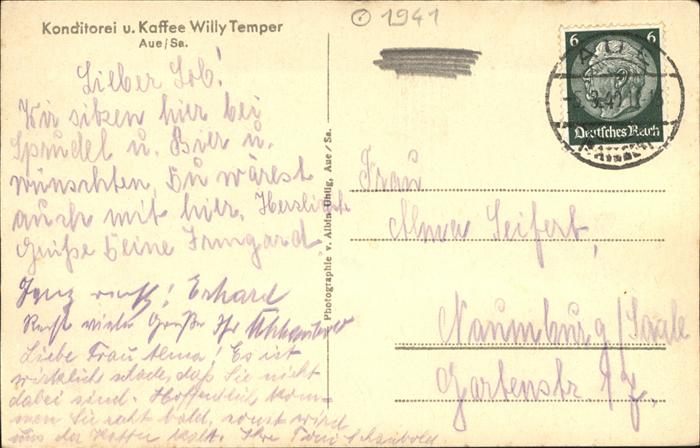 Konditorei u. Kaffee Willy Temper
Aue/Sa.
© 1941
6 6
Deutsches Reich
AUE
Lieber Bob!
Wir sitzen hier bei
Sprudel u. Bier u.
wünschten, Du wärest
auch mit hier. Herzlichste
Grüße Deine Irmgard
Erhard
Recht viele Grüße Ihr
Liebe Frau Alma! Es ist
wirklich schade, daß Sie nicht
dabei sind. Hoffentlich kom-
men Sie recht bald, sonst wird
uns der Kaffee kalt. Ihre
Photographie v. Albin Uhlig, Aue/Sa.
Frau
Alma Seifert,
Naumburg/Saale
Gartenstr